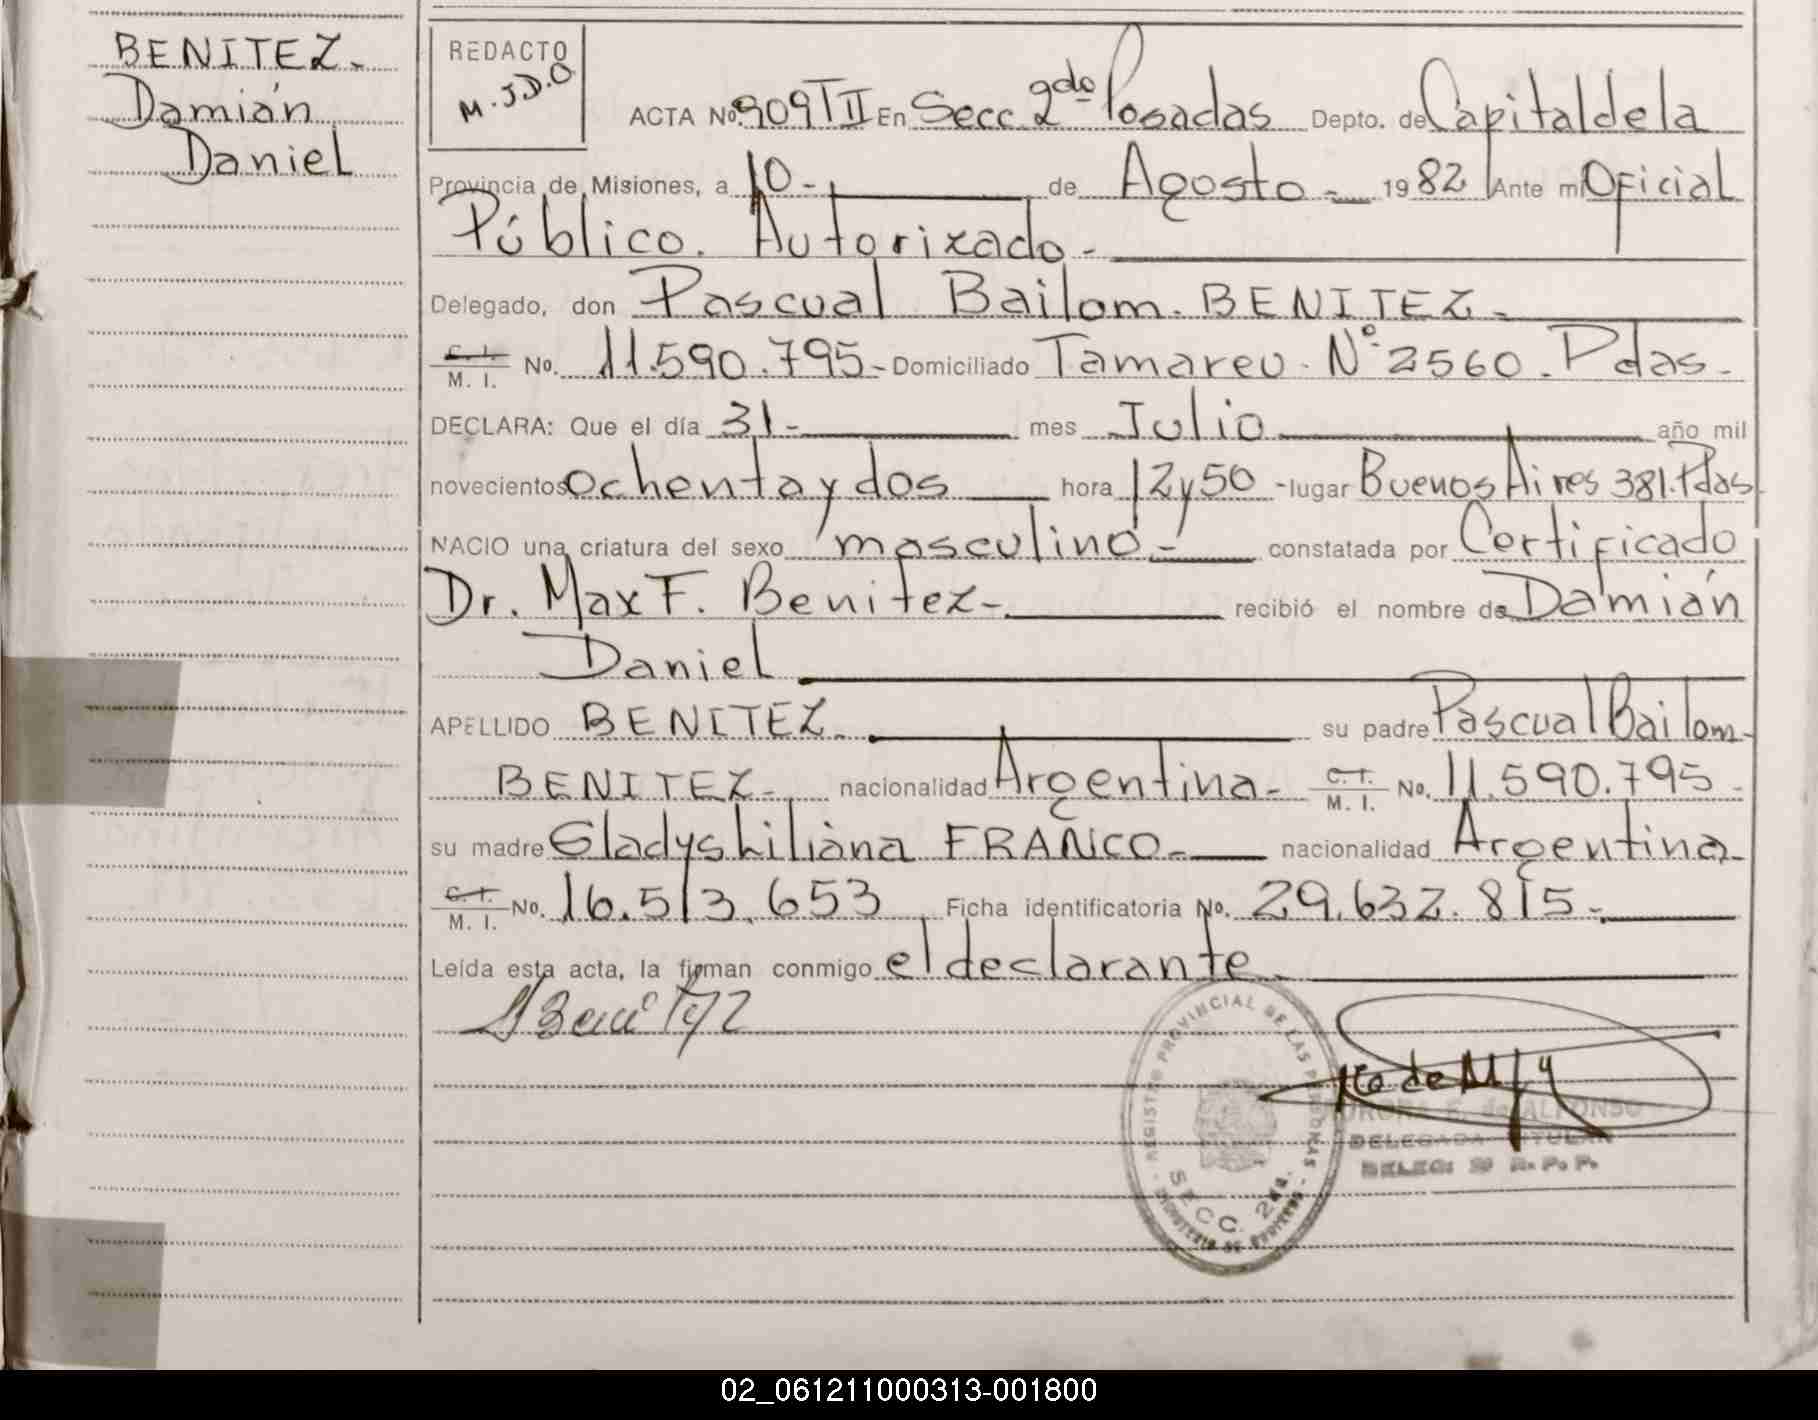 BENITEZ-
Damián
Daniel
REDACTO
M.J.D.O
ACTA No. 909 TII En Secc. 2da Posadas Depto. de Capital de la
Provincia de Misiones, a 10- de Agosto - 1982 Ante mi Oficial
Público. Autorizado-
Delegado, don Pascual Bailom. BENITEZ-
C. I. M. I. No. 11.590.795- Domiciliado Tamareu. N° 2560. Pdas-
DECLARA: Que el día 31- mes Julio año mil
novecientos ochenta y dos hora 12 y 50 - lugar Buenos Aires 381. Pdas
NACIO una criatura del sexo masculino- constatada por Certificado
Dr. Max F. Benitez- recibió el nombre de Damián
Daniel
APELLIDO BENITEZ. su padre Pascual Bailom-
BENITEZ- nacionalidad Argentina- C. I. M. I. No. 11.590.795-
su madre Gladys Liliana FRANCO- nacionalidad Argentina-
C. I. M. I. No. 16.513.653 Ficha identificatoria No. 29.632.815-
Leída esta acta, la firman conmigo el declarante-
REGISTRO PROVINCIAL DE LAS PERSONAS
SECC. 2da.
E. de ALFONSO
DELEGADA TITULAR
R. P. P.
02_061211000313-001800